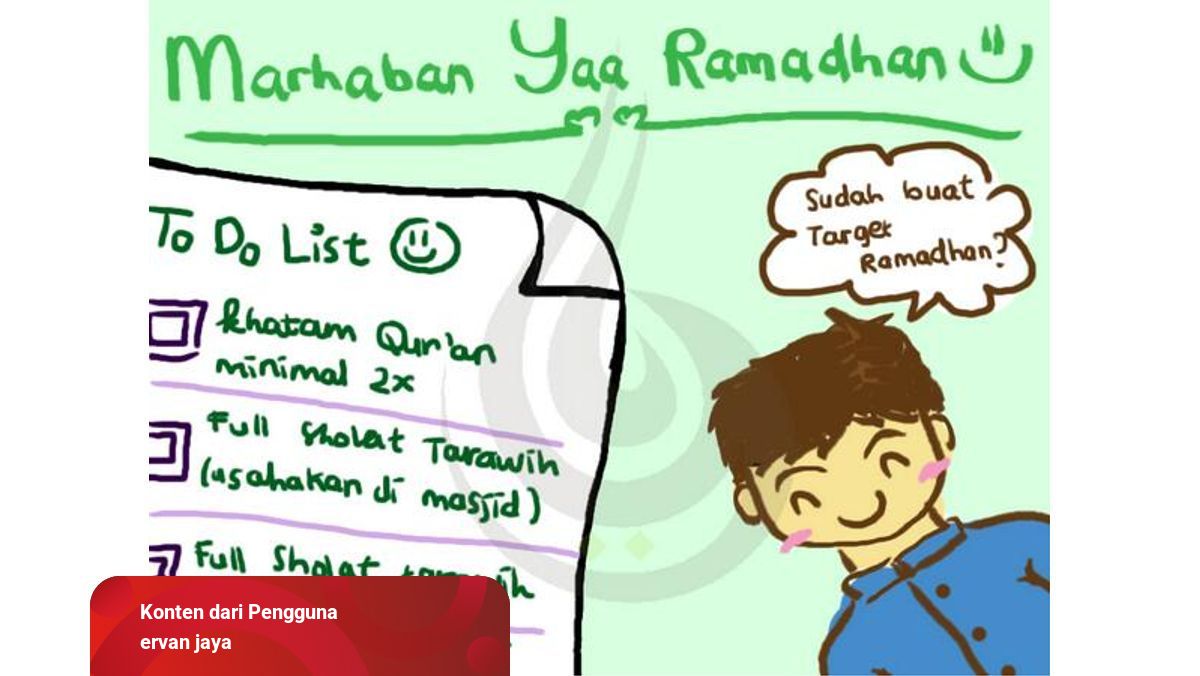 Marhaban Yaa Ramadhan
Sudah buat
Target
Ramadhan?
To Do List
khatam Qur'an
minimal 2x
Full Sholat Tarawih
(usahakan di masjid)
Full Sholat
Konten dari Pengguna
ervan jaya